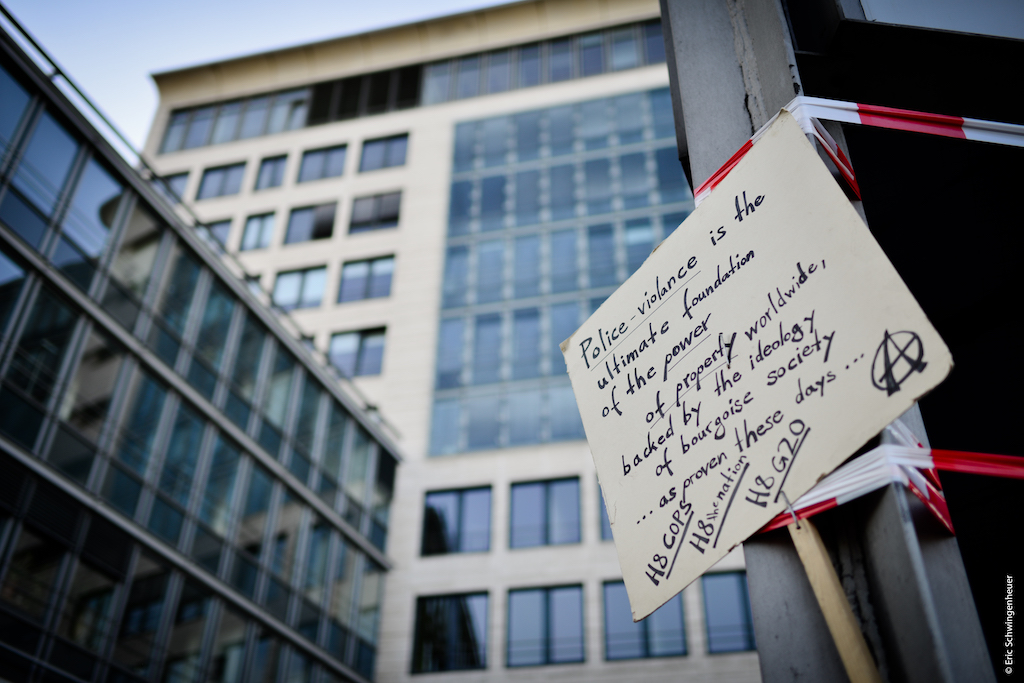 Police-violance is the
ultimate foundation
of the power
of property worldwide,
backed by the ideology
of bourgoise society
... as proven these days ...
H8 COPS
H8 the nation
H8 G20
© Eric Schwingenheuer